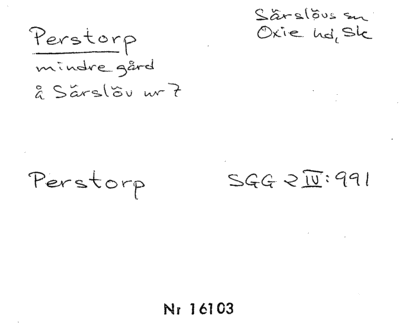 Perstorp
Särslövs sn
Oxie hd, Sk
mindre gård
å Särslöv nr 7
Perstorp SGG 2 IV: 991
Nr 16103